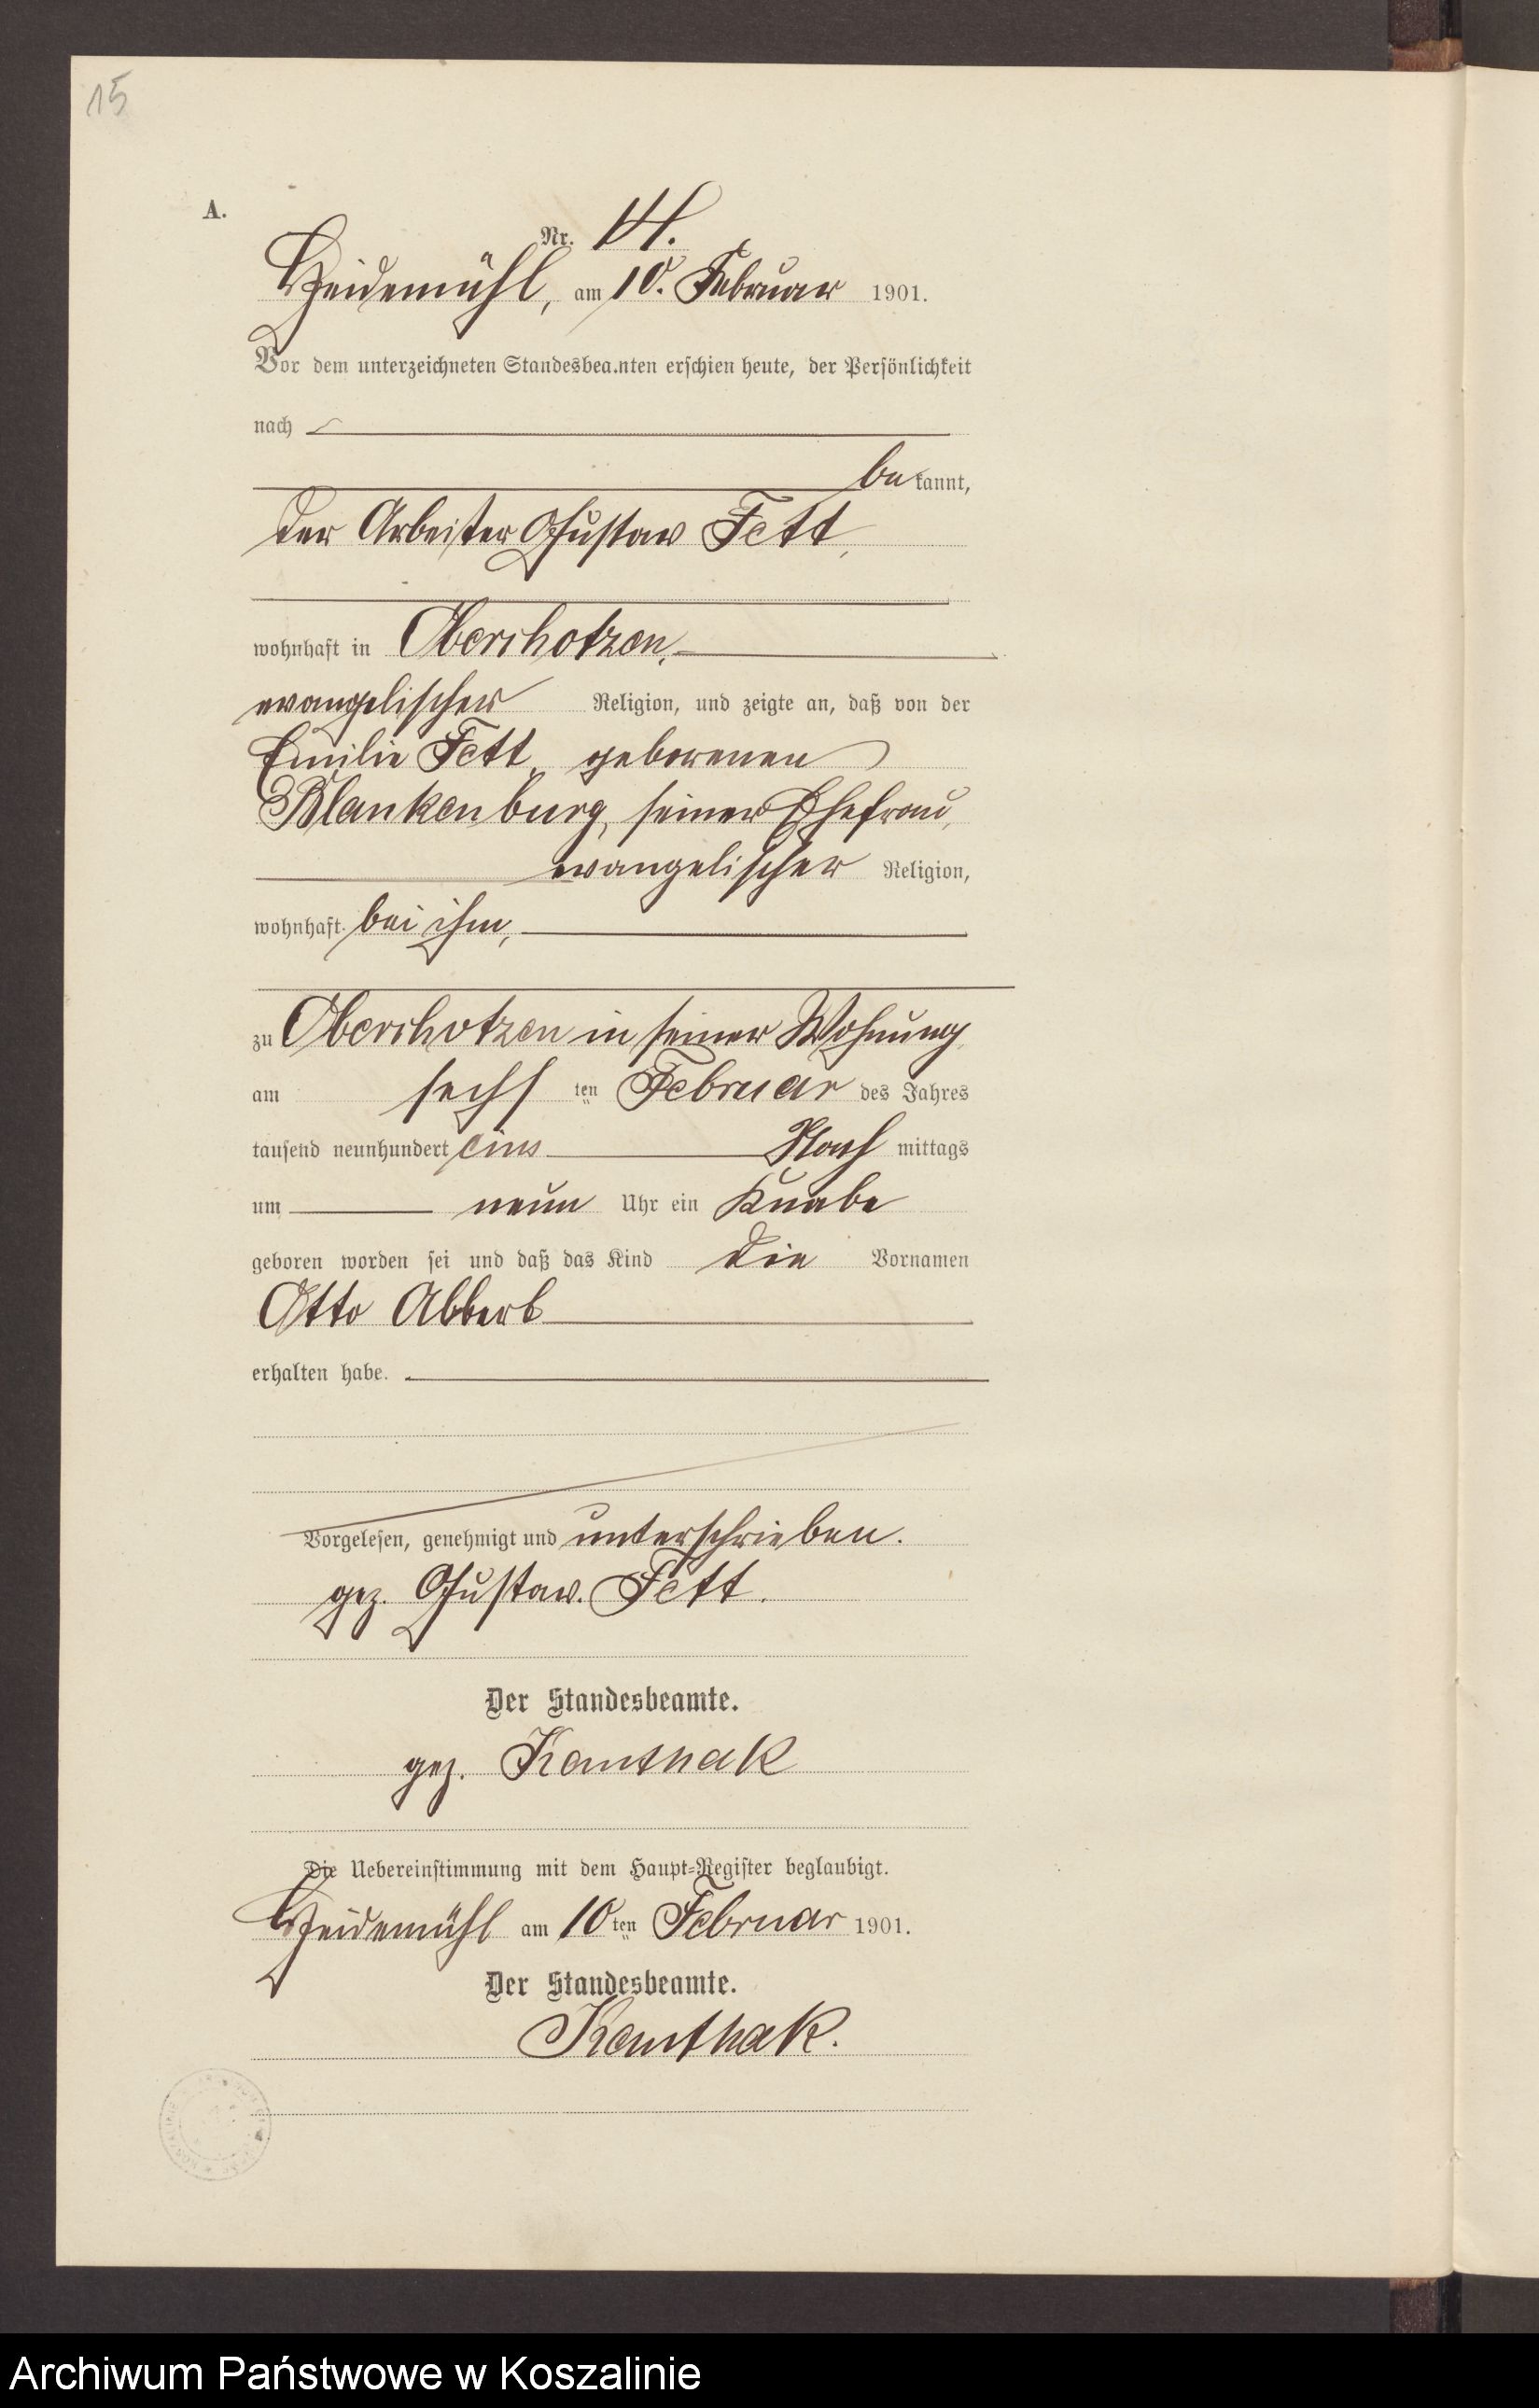 15
A.
Nr. 14.
Heidemühl, am 10. Februar 1901.
Vor dem unterzeichneten Standesbeamten erschien heute, der Persönlichkeit
nach
be kannt,
der Arbeiter Gustav Fett,
wohnhaft in Oberschotzen,
evangelischer Religion, und zeigte an, daß von der
Emilie Fett, geborenen
Blankenburg, seiner Ehefrau,
evangelischer Religion,
wohnhaft bei ihm,
zu Oberschotzen in seiner Wohnung
am sechs ten Februar des Jahres
tausend neunhundert eins Nach mittags
um neun Uhr ein Knabe
geboren worden sei und daß das Kind die Vornamen
Otto Albert
erhalten habe.
Vorgelesen, genehmigt und unterschrieben.
gez. Gustav Fett.
Der Standesbeamte.
gez. Kamthak
Die Uebereinstimmung mit dem Haupt-Register beglaubigt.
Heidemühl am 10 ten Februar 1901.
Der Standesbeamte.
Kamthak.
Archiwum Państwowe w Koszalinie